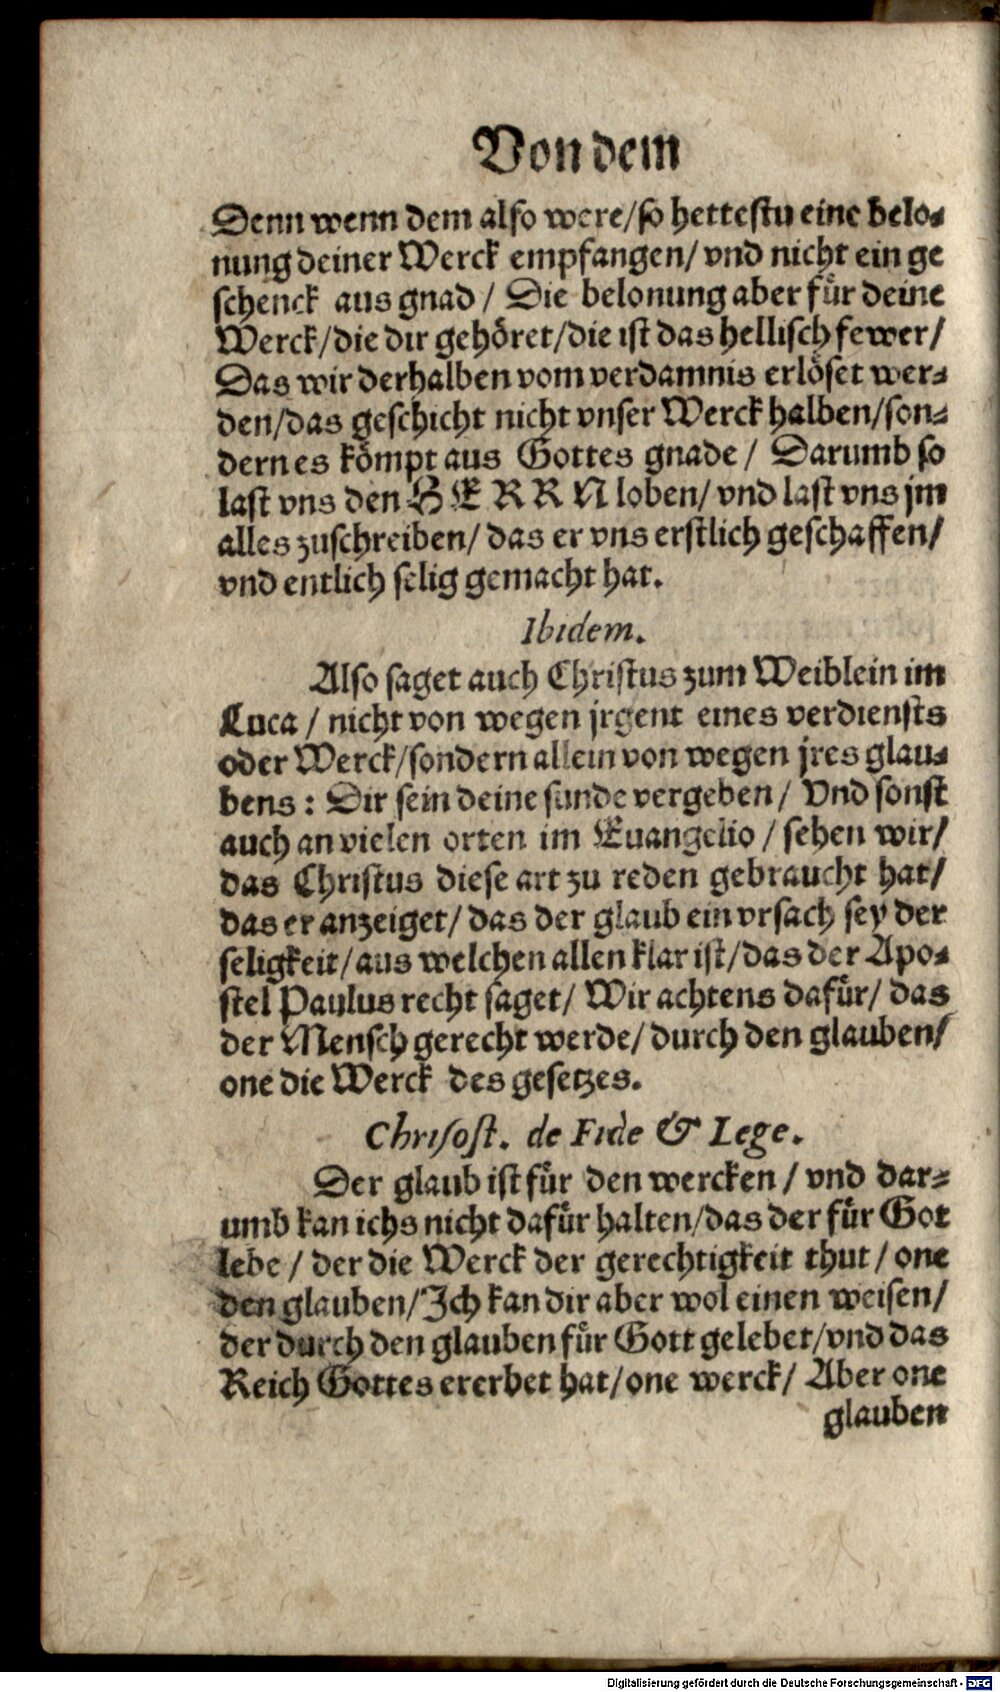 Von dem
Denn wenn dem also were/so hettestu eine belo-
nung deiner Werck empfangen/ vnd nicht ein ge
schenck aus gnad / Die belonung aber für deine
Werck/die dir gehöret/die ist das hellisch fewer/
Das wir derhalben vom verdamnis erlöset wer-
den/das geschicht nicht vnser Werck halben/son-
dern es kömpt aus Gottes gnade / Darumb so
last vns den HERRN loben/ vnd last vns jm
alles zuschreiben/ das er vns erstlich geschaffen/
vnd entlich selig gemacht hat.
Ibidem.
Also saget auch Christus zum Weiblein im
Luca / nicht von wegen jrgent eines verdiensts
oder Werck/sondern allein von wegen jres glau-
bens : Dir sein deine sunde vergeben / Vnd sonst
auch an vielen orten im Euangelio / sehen wir/
das Christus diese art zu reden gebraucht hat/
das er anzeiget/ das der glaub ein vrsach sey der
seligkeit/aus welchen allen klar ist/das der Apo-
stel Paulus recht saget/ Wir achtens dafür/ das
der Mensch gerecht werde/ durch den glauben/
one die Werck des gesetzes.
Chrisost. de Fide & Lege.
Der glaub ist für den wercken / vnd dar-
umb kan ichs nicht dafür halten/das der für Got
lebe / der die Werck der gerechtigkeit thut / one
den glauben/Ich kan dir aber wol einen weisen/
der durch den glauben für Gott gelebet/vnd das
Reich Gottes ererbet hat/one werck/ Aber one
glauben
Digitalisierung gefördert durch die Deutsche Forschungsgemeinschaft - DFG